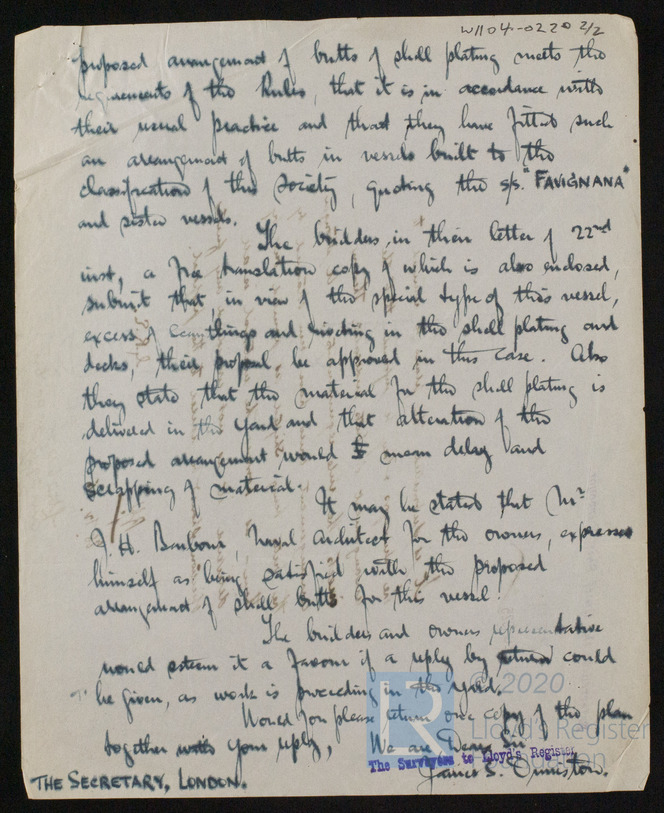 W1104-0220 2/2
proposed arrangement of butts of shell plating meets the
requirements of the Rules, that it is in accordance with
their usual practice and that they have fitted such
an arrangement of butts in vessels built to the
classification of this Society, quoting the s/s. "FAVIGNANA"
and sister vessels.
The builders, in their letter of 22nd
inst, a free translation copy of which is also enclosed,
submit that, in view of the special type of this vessel,
excess of scantlings and riveting in the shell plating and
decks, their proposal be approved in this case. Also
they state that the material for the shell plating is
delivered in the yard and that alteration of the
proposed arrangement would mean delay and
scrapping of material.
It may be stated that Mr.
J. H. Barbour, naval architect for the owners, expresses
himself as being satisfied with the proposed
arrangement of shell butts for this vessel.
The builders and owners representative
would esteem it a favour if a reply by return could
be given, as work is proceeding in the yard.
Would you please return one copy of the plan
together with your reply, We are Dear Sir,
The Surveyors to Lloyd's Register
James S.
THE SECRETARY, LONDON.
© 2020
Lloyd's Register
Foundation
LR